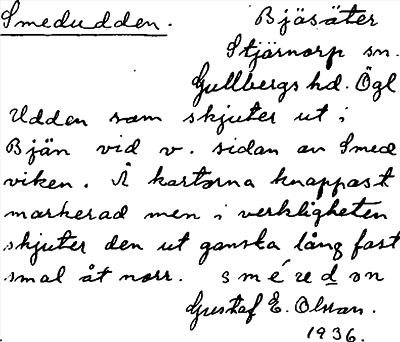 Smedudden. Bjäsäter
Stjärnorp sn.
Gullbergs hd. Ögl
Udden som skjuter ut i
Bjän vid v. sidan av Smed
viken. Å kartorna knappast
markerad men i verkligheten
skjuter den ut ganska lång fast
smal åt norr. smé ud on
Gustaf E. Olsson.
1936.